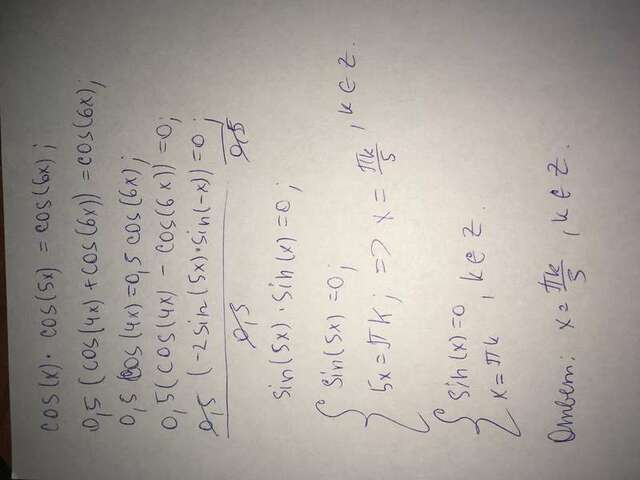 cos(x) · cos(5x) = cos(6x);
0,5 (cos(4x) + cos(6x)) = cos(6x);
0,5 cos(4x) = 0,5 cos(6x);
0,5 (cos(4x) - cos(6x)) = 0;
0,5 (-2 sin(5x) · sin(-x)) = 0;
0,5 0,5
sin(5x) · sin(x) = 0;
{ sin(5x) = 0;
5x = πk; => x = πk/5, k ∈ Z.
{ sin(x) = 0
x = πk, k ∈ Z.
Ответ: x = πk/5, k ∈ Z.